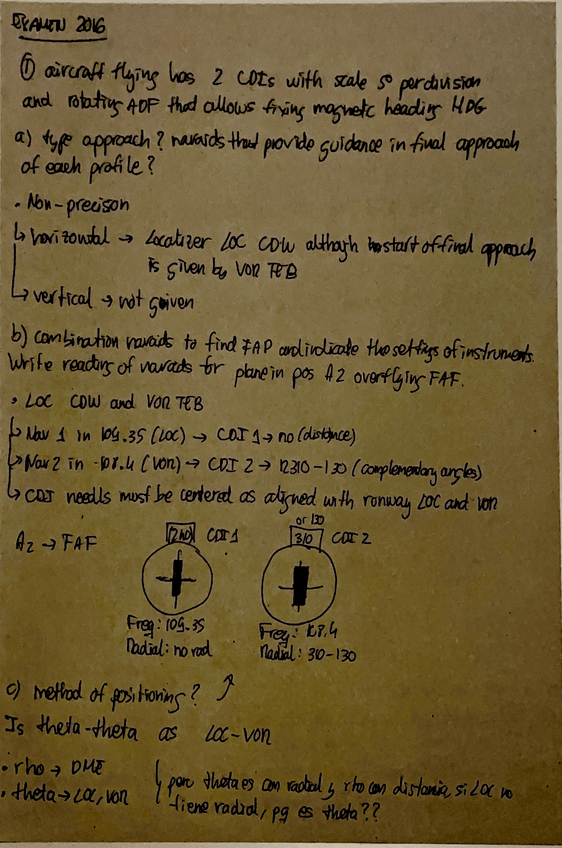 EXAMEN 2016
① aircraft flying has 2 CDIs with scale 5º per division
and rotating ADF that allows fixing magnetic heading HDG
a) type approach? navaids that provide guidance in final approach
of each profile?
• Non-precison
↳ horizontal → Localizer LOC CDW although start of final approach
is given by VOR TEB
↳ vertical → not given
b) combination navaids to find FAP and indicate the settings of instruments.
Write reading of navaids for plane in pos A2 overflying FAF.
• LOC CDW and VOR TEB
↳ Nav 1 in 109.35 (LOC) → CDI 1 → no (distance)
↳ Nav 2 in 108.4 (VOR) → CDI 2 → R310-130 (complementary angles)
↳ CDI needls must be centered as aligned with runway LOC and VOR
or 130
A2 → FAF CDI 1 310 CDI 2
Freq: 109.35 Freq: 108.4
Radial: no rad Radial: 310-130
c) method of positioning?
Is theta-theta as LOC-VOR
• rho → DME
• theta → LOC, VOR
pero theta es con radial y rho con distancia, si LOC no
tiene radial, pq es theta??